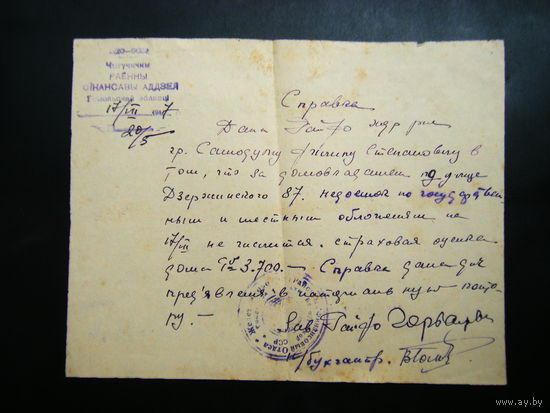 РАЁННЫ
ФІНАНСАВЫ АДДЗЕЛ
17/VII 1947
20/5
Справка
Дана Райфо
гр. Самодумы Степановичу в
том, что за домовладением по улице
Дзержинского 87. недоимок по государствен-
ным и местным обложениям на
17/VII не числится. страховая оценка
дома 3.700.— Справка дана для
пред'явления в нотариальную конто-
ру.—
Зав. Райфо
бухгалтер.
www.ay.by